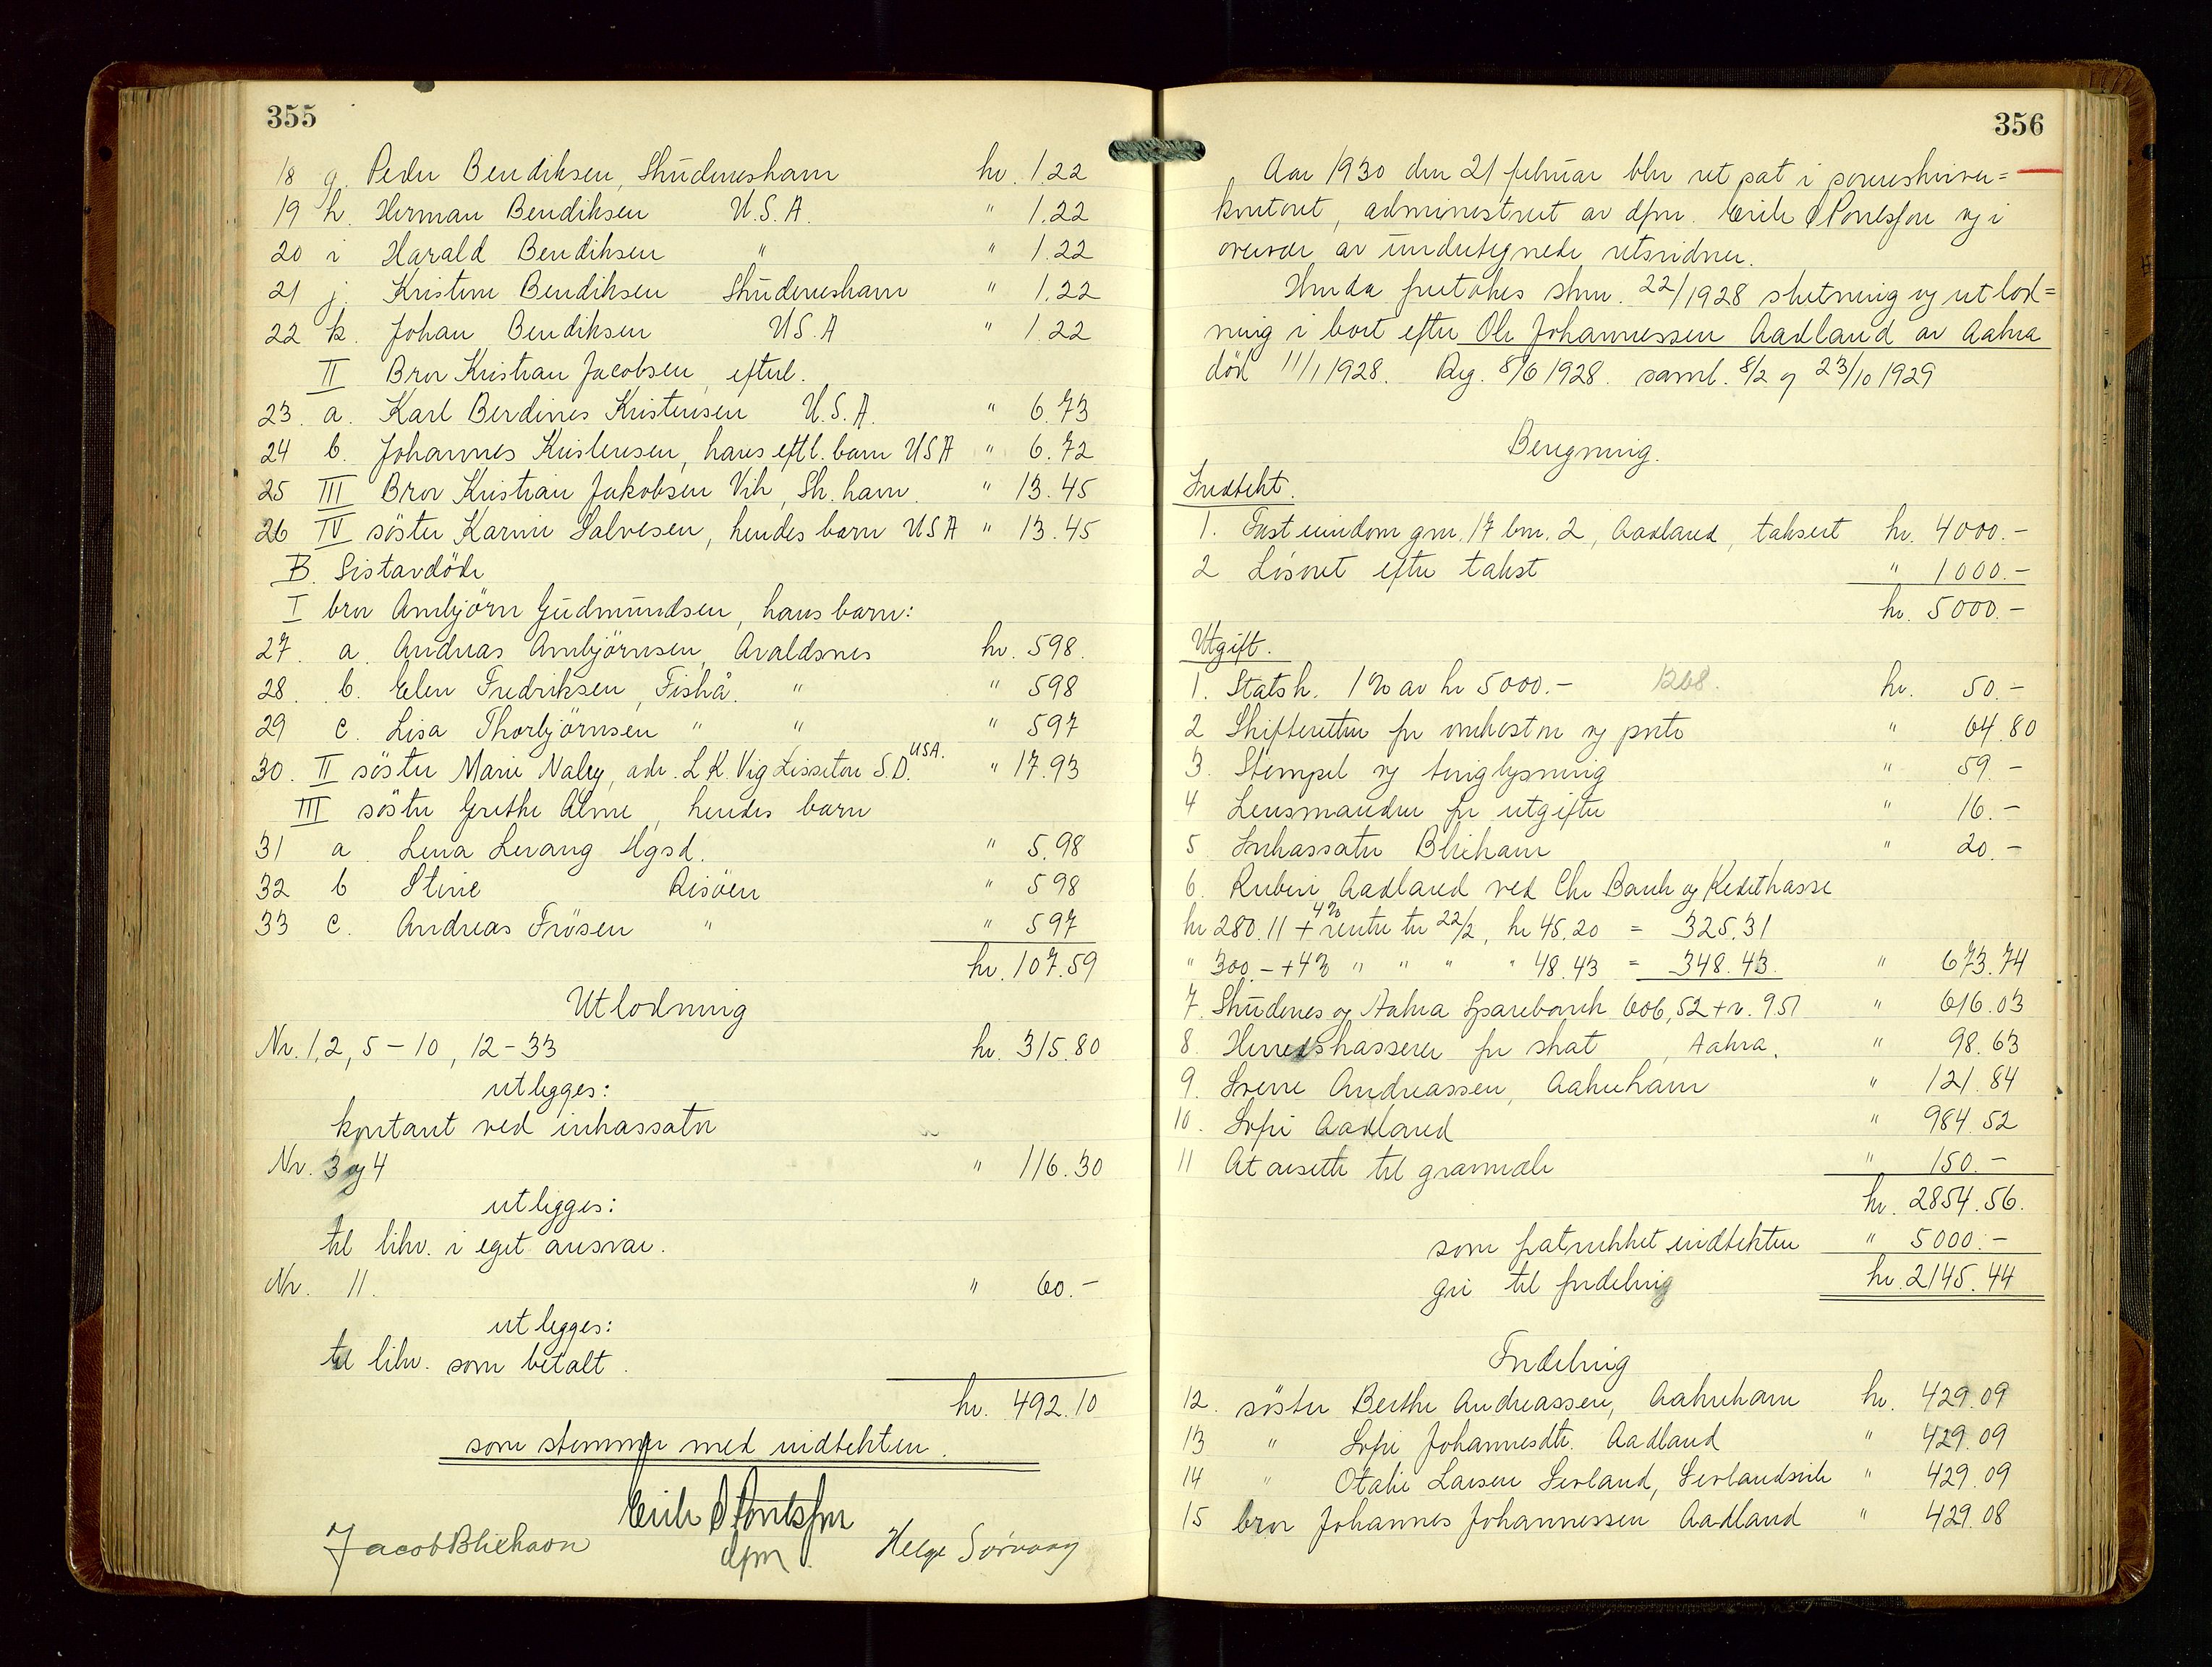 355
18 g. Peder Bendiksen, Skudeneshavn kr. 1.22
19 h. Herman Bendiksen U.S.A. " 1.22
20 i Harald Bendiksen " " 1.22
21 j. Kristine Bendiksen Skudeneshavn " 1.22
22 k. Johan Bendiksen U.S.A " 1.22
II Bror Kristian Jacobsen, efterl.
23. a. Karl Berdines Kristensen U.S.A. " 6.73
24 b. Johannes Kristensen, hans eftl. barn USA " 6.72
25 III Bror Kristian Jakobsen Vik, Sk.havn. " 13.45
26 IV søster Karine Salvesen, hendes barn USA " 13.45
B. Sistavdøde
I bror Ambjörn Gudmundsen, hans barn:
27. a. Andreas Ambjörnsen, Avaldsnes kr. 598.
28. b. Elen Fredriksen, Fiskå. " " 598
29 c. Lisa Thorbjörnsen " " " 597
30. II søster Marie Naley, adr. L.K. Vig Lissetou S.D. USA. " 17.93
III søster Grethe Alme, hendes barn
31 a. Lena Levang Hgsd. " 5.98
32 b Stine Risöen " 598
33 c. Andreas Frösen " " 597
kr. 107.59
Utlodning
Nr. 1, 2, 5 - 10, 12 - 33 kr. 315.80
utlegges:
kontant ved inkassator
Nr. 3 og 4 " 116.30
utlegges:
til likv. i eget ansvar.
Nr. 11. " 60.-
utlegges:
til likv. som betalt.
kr. 492.10
som stemmer med indtekten.
Erik
dfm.
Jacob Blikhavn Helge Sørvaag
356
Aar 1930 den 21 februar blev ret sat i sorenskriver=
kontoret, administrert av dfm. Erik og i
overvær av undertegnede retsvidner.
Herda foretokes skm. 22/1928 slutning og utlod=
ning i boet efter Ole Johannessen Aadland av Aakra
död 11/1 1928. Reg. 8/6 1928. saml. 8/2 og 23/10 1929
Beregning.
Indtekt.
1. Fast eiendom gnr. 17 bnr. 2, Aadland, taksert kr. 4000.-
2 Lösöret efter takst " 1000.-
kr. 5000.-
Utgift.
1. Statsk. 1 % av kr 5000.- 1268. kr. 50.-
2 Skifteretten for omkostn og porto " 64.80
3. Stempel og tinglysning " 59.-
4 Lensmanden for utgifter " 16.-
5 Inkassator Blikhavn " 20.-
6. Ruben Aadland ved Chr Bank og Kreditkasse
kr 280.11 + 4% rente til 22/2, kr 45.20 = 325.31
" 300.- + 4% " " " " 48.43 = 348.43. " 673.74
7. Skudenes og Aakra Sparebank 606,52 + r. 9.51 " 616.03
8. Herredskasserer for skat, Aakra. " 98.63
9. Sverre Andreassen, Aakrehavn " 121.84
10. Sofie Aadland " 984.52
11 At avsette til gravmæle " 150.-
kr. 2854.56.
som fratrukket indtekten " 5000.-
gir til fordeling kr. 2145.44
Fordeling
12. søster Berthe Andreassen, Aakrehavn kr. 429.09
13 " Sofie Johannesdtr. Aadland " 429.09
14 " Otalie Larsen Sevland, Sevlandsvik " 429.09
15 bror Johannes Johannessen Aadland " 429.08